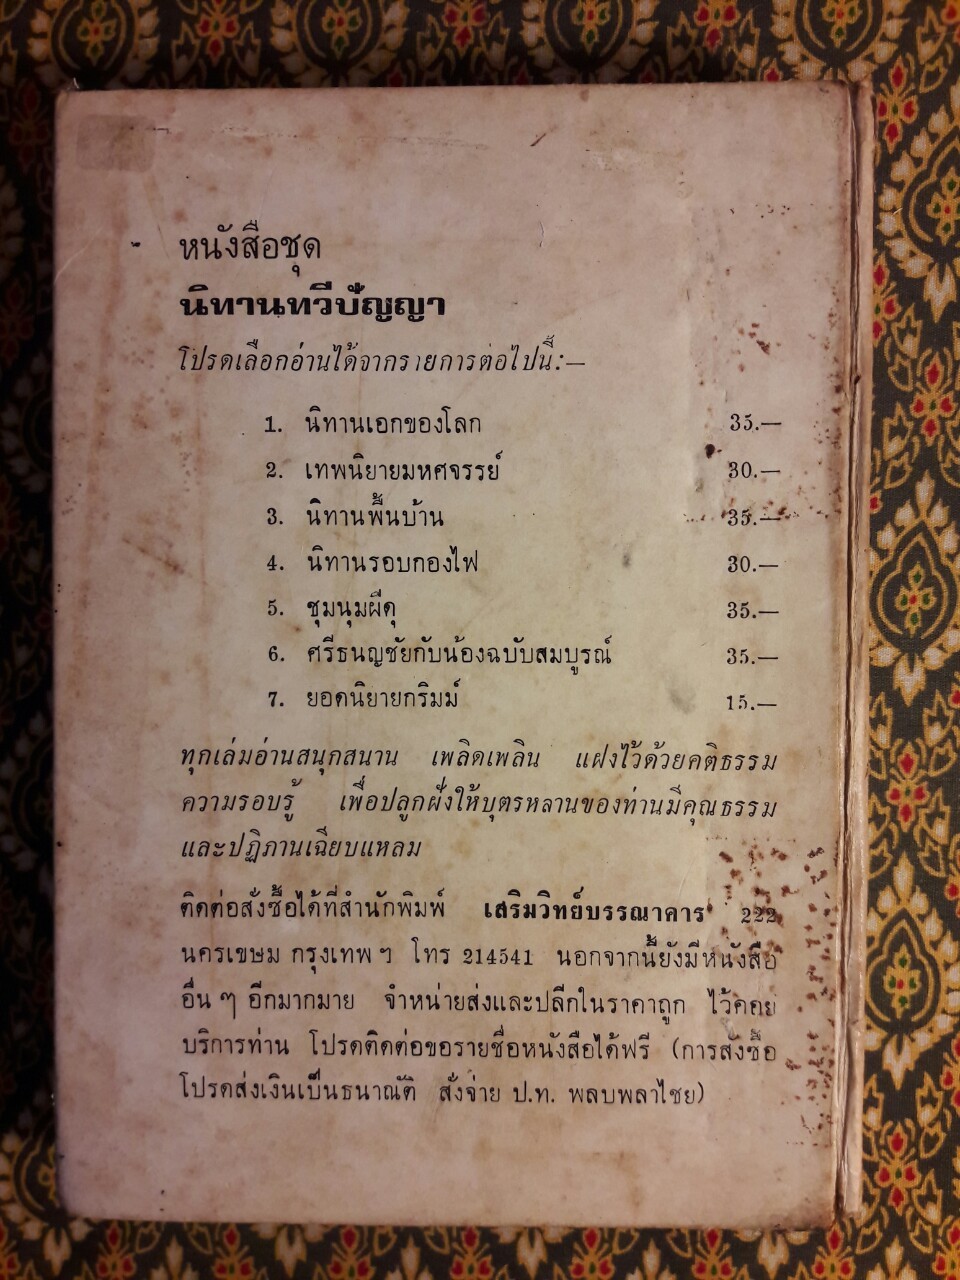 หนังสือชุด
นิทานทวีปัญญา
โปรดเลือกอ่านได้จากรายการต่อไปนี้:—
1. นิทานเอกของโลก 35.—
2. เทพนิยายมหศจรรย์ 30.—
3. นิทานพื้นบ้าน 35.—
4. นิทานรอบกองไฟ 30.—
5. ชุมนุมผีดุ 35.—
6. ศรีธนญชัยกับน้องฉบับสมบูรณ์ 35.—
7. ยอดนิยายกริมม์ 15.—
ทุกเล่มอ่านสนุกสนาน เพลิดเพลิน แฝงไว้ด้วยคติธรรม
ความรอบรู้ เพื่อปลูกฝั่งให้บุตรหลานของท่านมีคุณธรรม
และปฏิภานเฉียบแหลม
ติดต่อสั่งซื้อได้ที่สำนักพิมพ์ เสริมวิทย์บรรณาคาร 222
นครเขษม กรุงเทพฯ โทร 214541 นอกจากนี้ยังมีหนังสือ
อื่นๆ อีกมากมาย จำหน่ายส่งและปลีกในราคาถูก ไว้คอย
บริการท่าน โปรดติดต่อขอรายชื่อหนังสือได้ฟรี (การสั่งซื้อ
โปรดส่งเงินเป็นธนาณัติ สั่งจ่าย ป.ท. พลบพลาไชย)